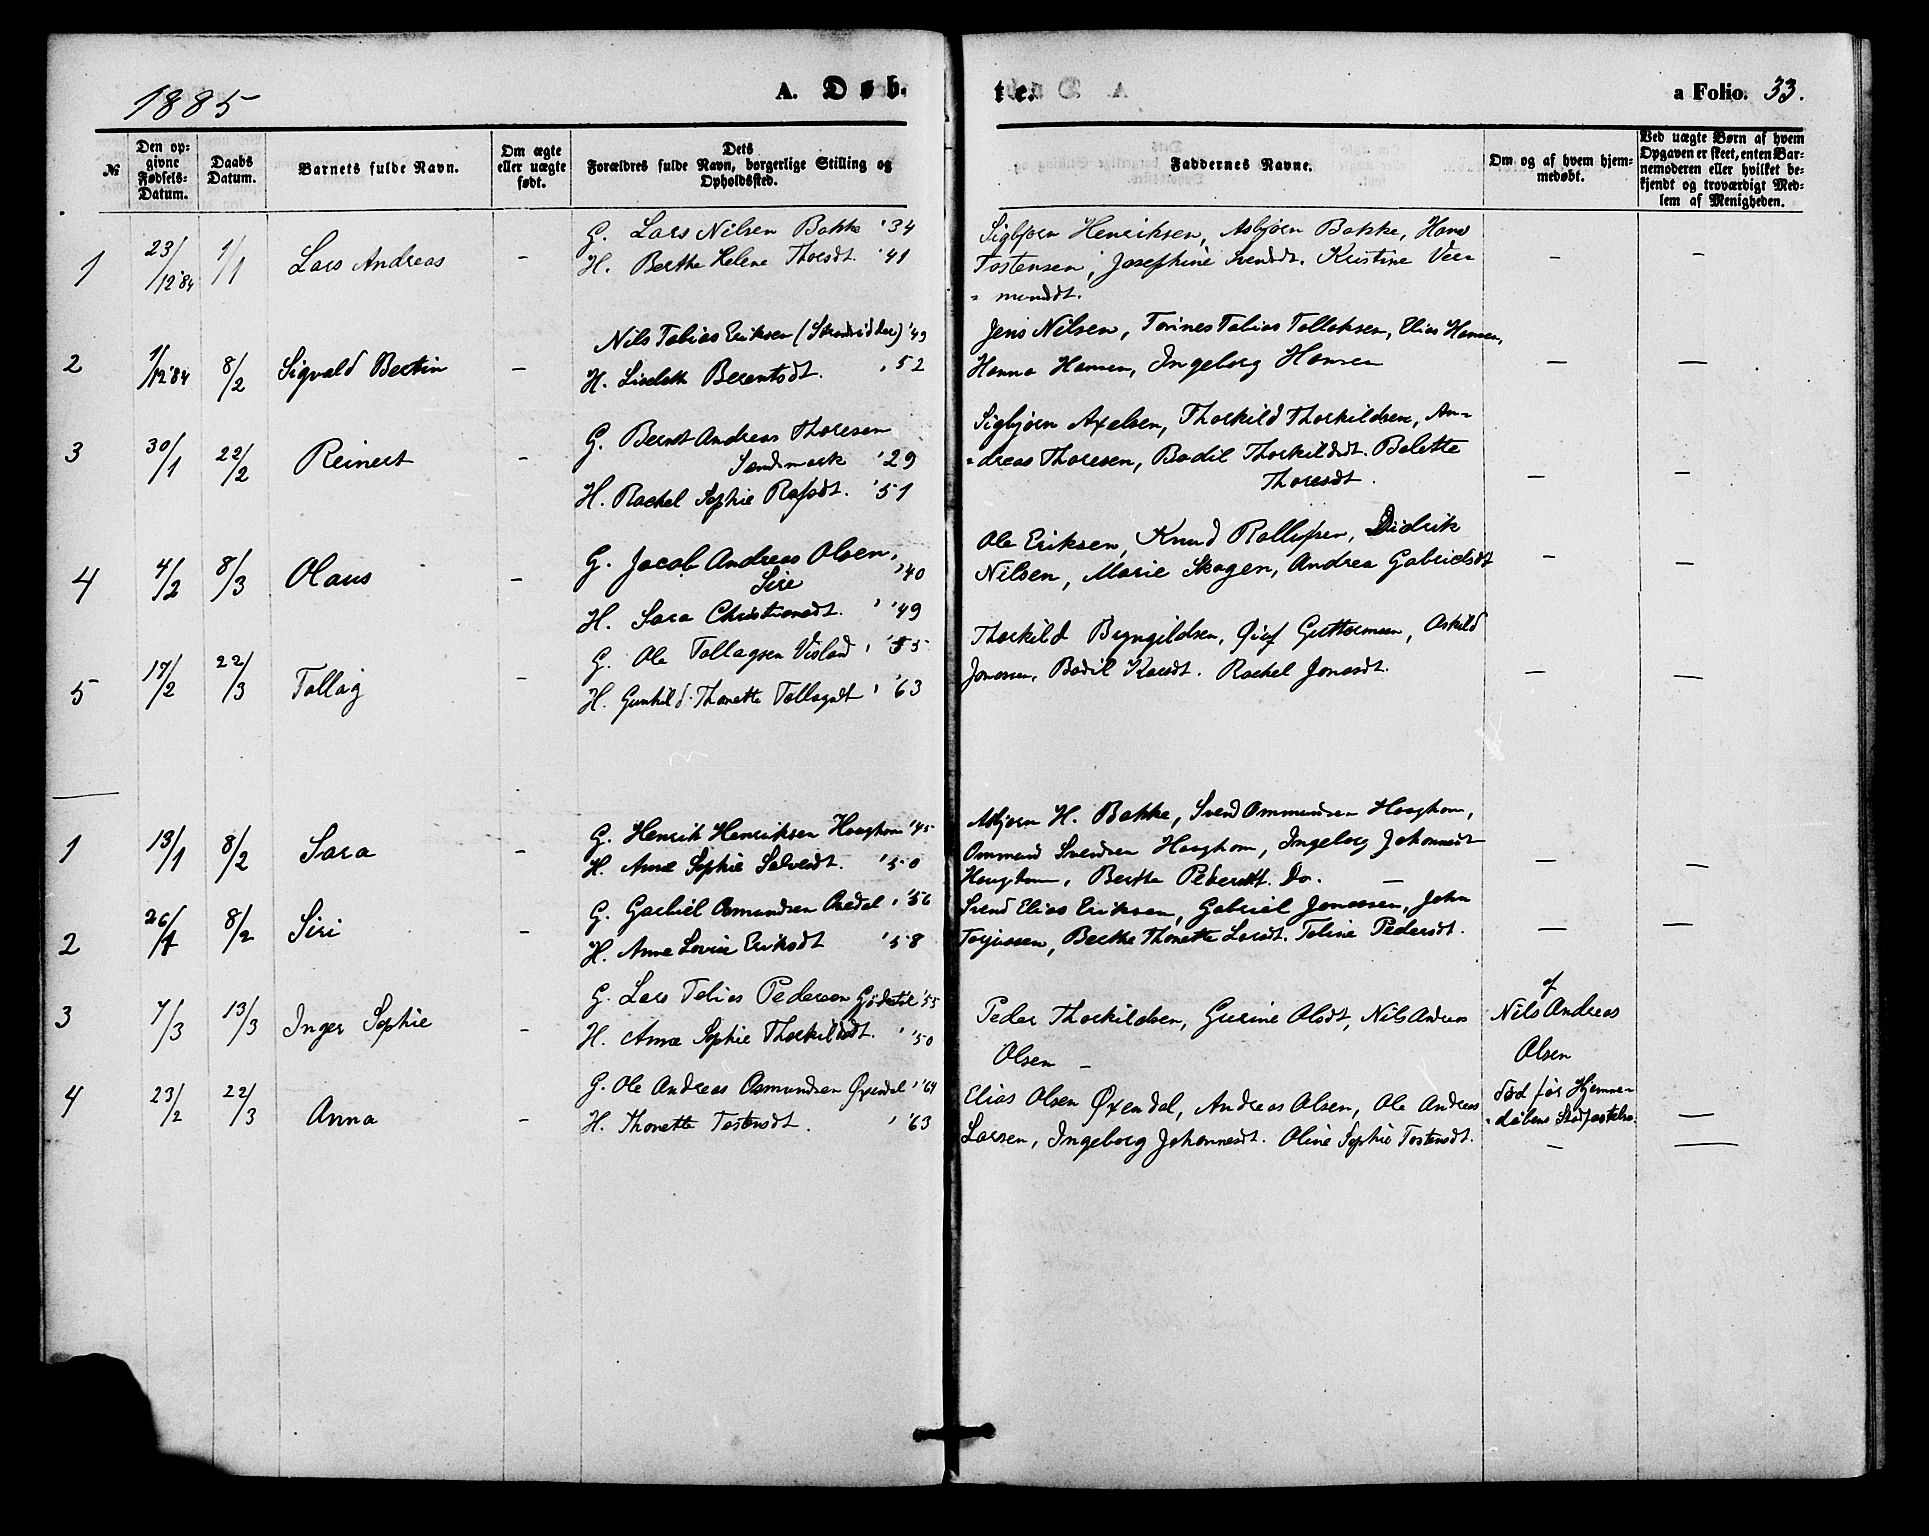 1885
A. Døb-
te.
a Folio. 33.
№
Den op-
givne
Fødsels-
Datum.
Daabs
Datum.
Barnets fulde Navn.
Om ægte
eller uægte
født.
Dets
Forældres fulde Navn, borgerlige Stilling og
Opholdssted.
Faddernes Navne.
Om og af hvem hjem-
medøbt.
Ved uægte Børn af hvem
Opgaven er skeet, enten Bar-
nemoderen eller hvilket be-
kjendt og troværdigt Med-
lem af Menigheden.
1 23/12 84 1/1 Lars Andreas –
G. Lars Nilsen Bakke '34
H. Berthe Helene Thorsdt. '41
Sigbjørn Henriksen, Asbjørn Bakke, Hans
Tostensen, Josephine Svendsdt. Kristine Ver-
= mundsdt.
– –
2 1/12 84 8/2 Sigvald Bertin –
Nils Tobias Eriksen (Strandridder) '49
H. Lisebeth Berentsdt. '52
Jens Nilsen, Torines Tobias Tollaksen, Elias Hansen,
Hanna Hansen, Ingeborg Hansen
– –
3 30/1 22/2 Reinert –
G. Bernt Andreas Thoresen
Sandsmark '29
H. Rachel Sophie Rafsdt. '51
Sigbjørn Axelsen, Thorkild Thorkildsen, An=
=dreas Thoresen, Bodil Thorkildsdt. Bolette
Thoresdt.
– –
4 4/2 8/3 Olaus –
G. Jacob Andreas Olsen,
Sire '40
H. Sara Christiansdt. '49
Ole Eriksen, Knud Rollufsen, Didrik
Nilsen, Marie Skogen, Andrea Gabrielsdt
– –
5 17/2 22/3 Tollag –
G. Ole Tollagsen Visland '55
H. Gunhild Thonette Tollagsdt '63
Thorkild Bryngildsen, Guttormsen, Askild
Jonassen, Bodil Karsdt. Rachel Jonasdt.
– –
1 13/1 8/2 Sara –
G. Henrik Henriksen Haaghom '45
H. Anne Sophie Salvesdt. '50
Asbjørn H. Bakke, Svend Ommundsen Haaghom,
Ommund Svendsen Haaghom, Ingeborg Johannesdt
Haaghom, Berthe Pedersdt. Do. –
– –
2 26/1 8/2 Siri –
G. Gabriel Osmundsen '56
H. Anne Lovise Eriksdt '58
Svend Elias Eriksen, Gabriel Jonassen, John
Torjussen, Berthe Thonette Larsdt. Toline Pedersdt.
– –
3 7/3 13/3 Inger Sophie –
G. Lars Tobias Pedersen Gjdestøl '55
H. Anne Sophie Thorkildsdt. '50
Peder Thorkildsen, Gurine Olsdt, Nils Andreas
Olsen –
af
Nils Andreas
Olsen
død før Hjemme-
-døbens Stadfæstelse
–
4 23/2 22/3 Anna –
G. Ole Andreas Osmundsen Øxendal '64
H. Thonette Tostensdt. '63
Elias Olsen Øxendal, Andreas Olsen, Ole Andreas
Larsen, Ingeborg Johannesdt. Oline Sophie Tostensdt.
– –